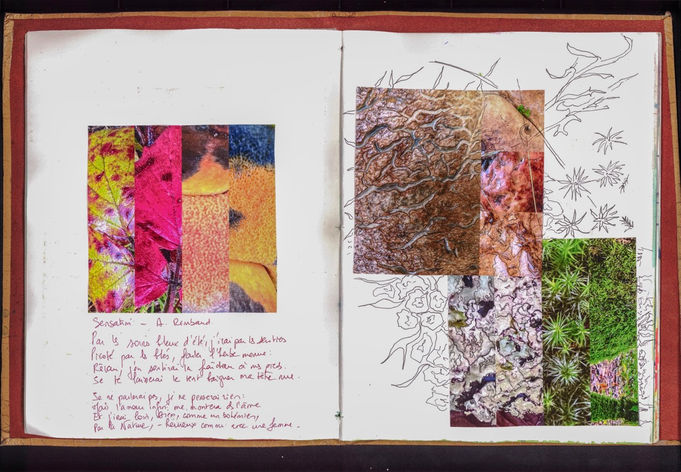 Sensation – A. Rimbaud.
Par les soirs bleus d'été, j'irai par les sentiers
Picoté par les blés, fouler l'herbe menue :
Rêveur, j'en sentirai la fraîcheur à mes pieds.
Je laisserai le vent baigner ma tête nue.
Je ne parlerai pas, je ne penserai rien :
Mais l'amour infini me montera dans l'âme
Et j'irai loin, bien loin, comme un bohémien,
Par la Nature, – heureux comme avec une femme.